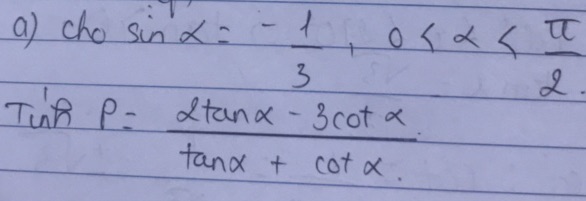 a) cho sin α = - 1/3, 0 < α < π/2.
Tính P = (2tanα - 3cot α)/(tanα + cot α).